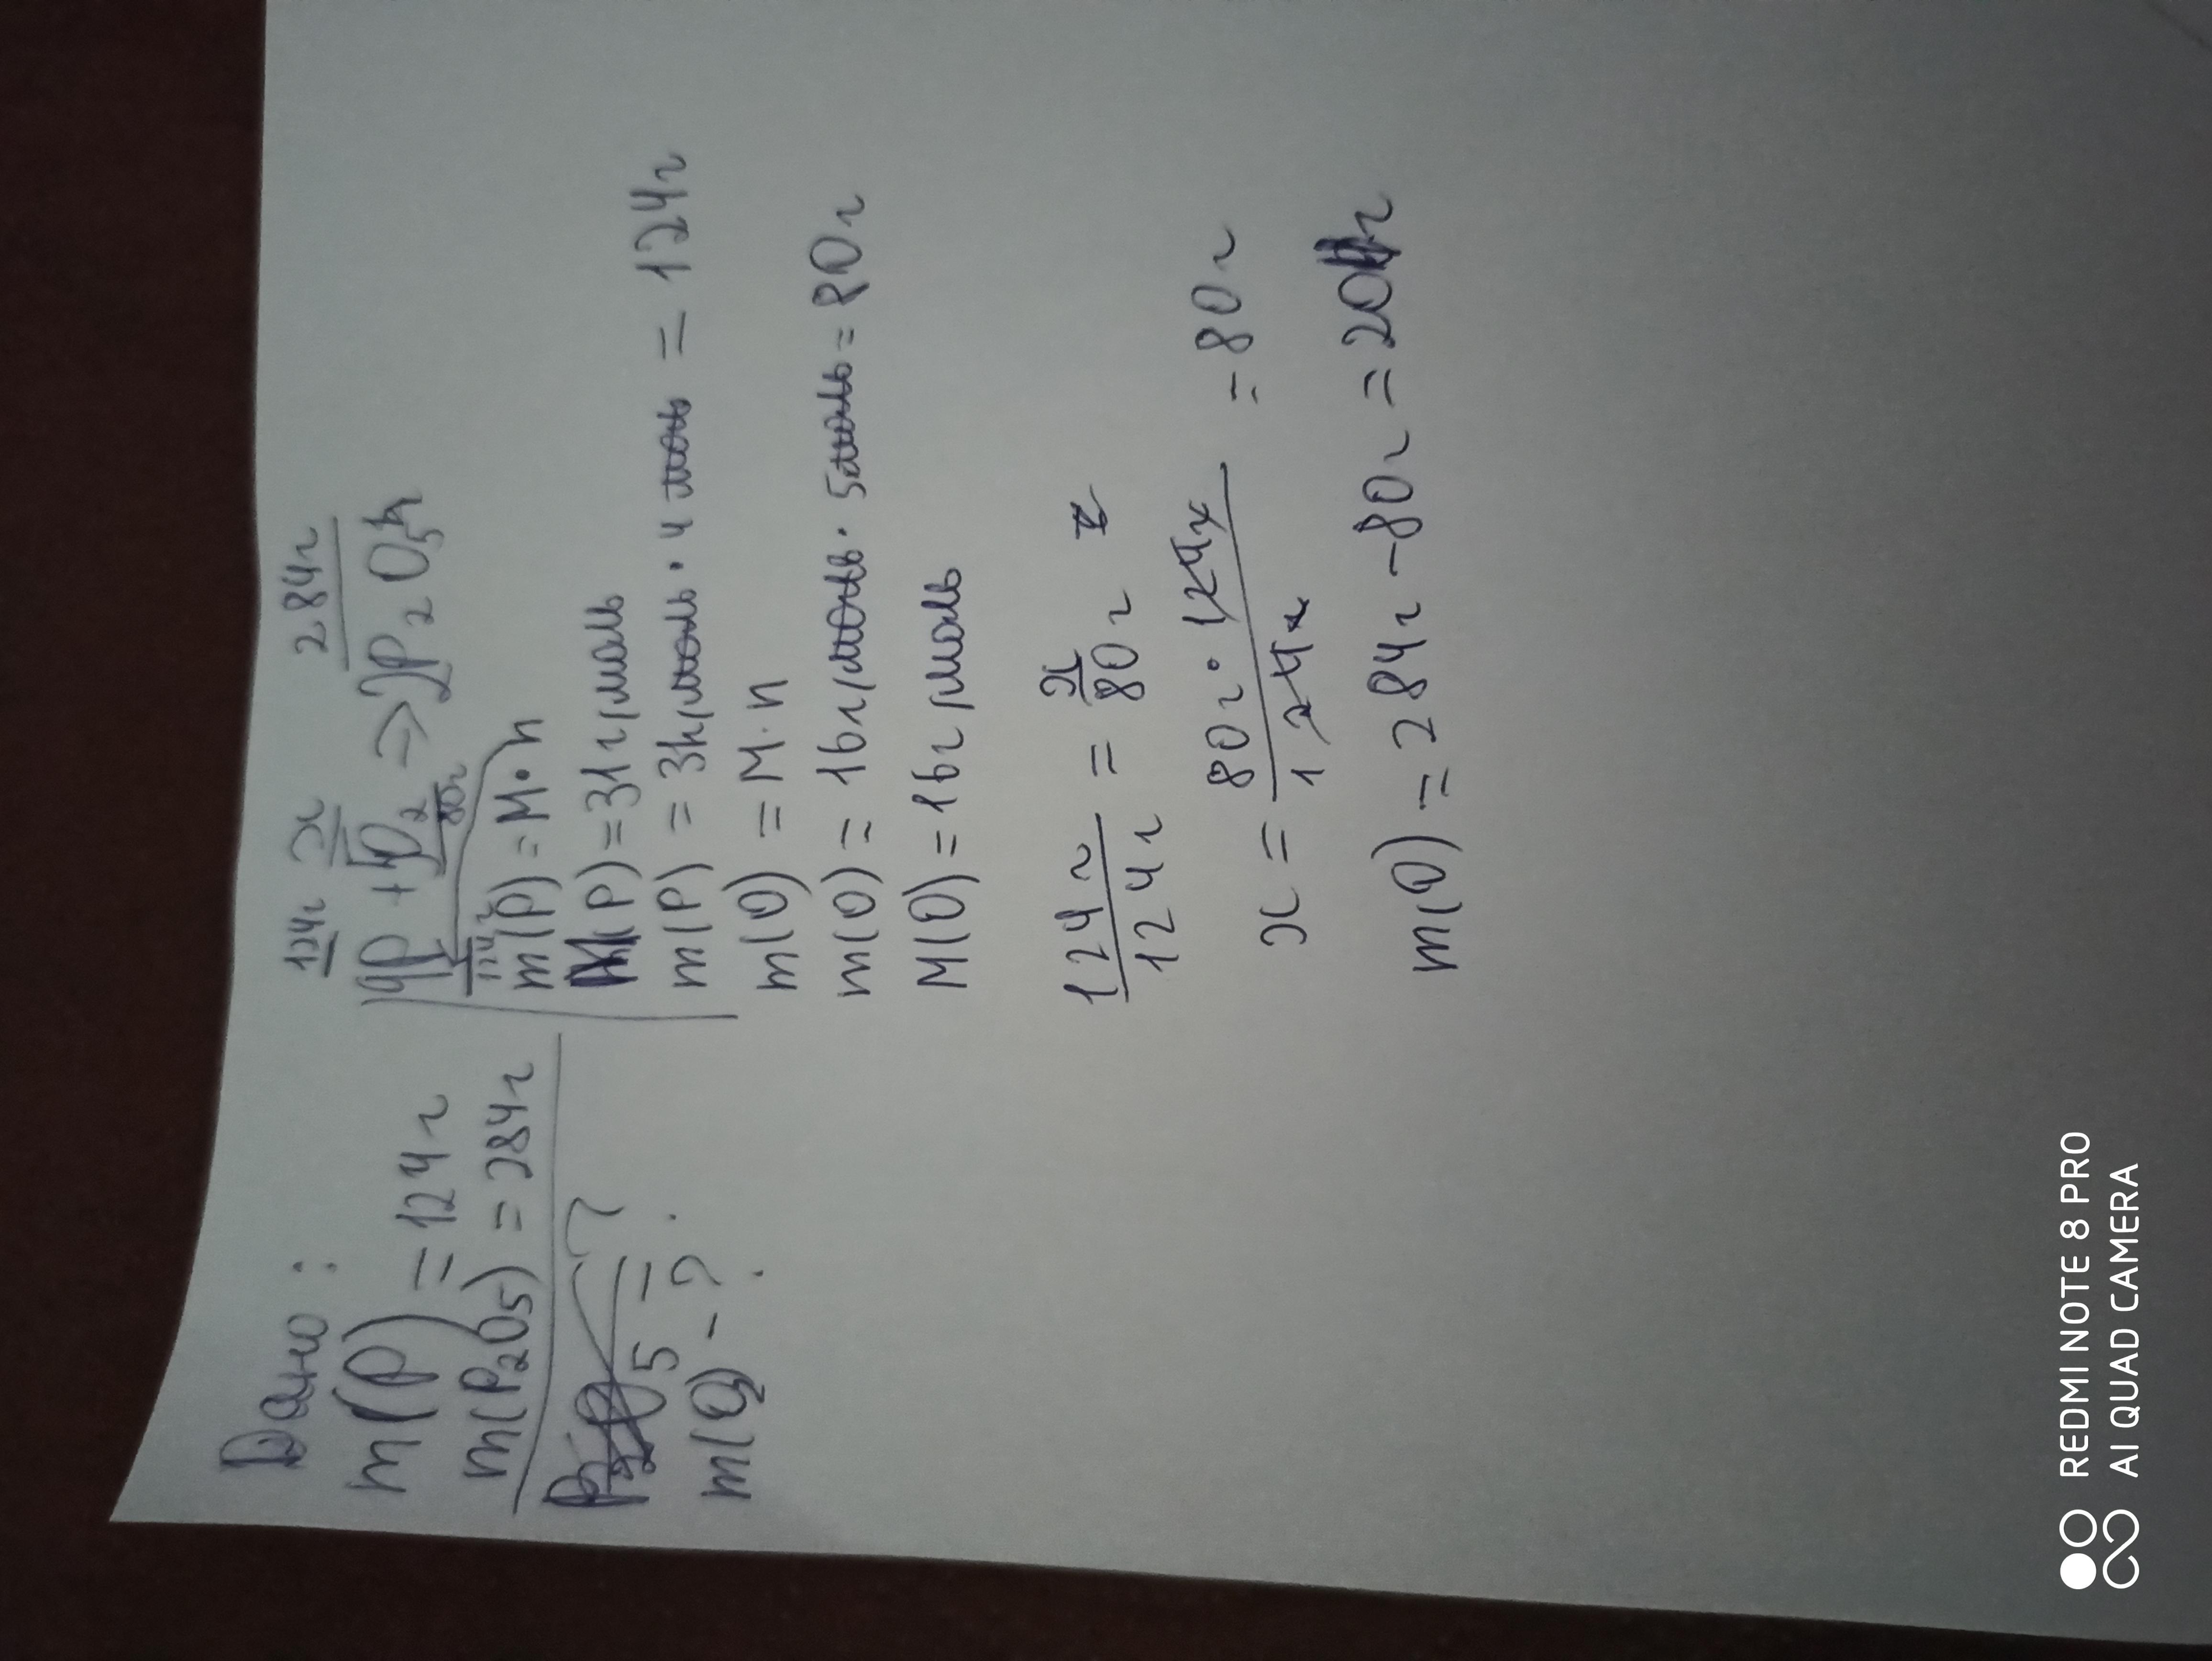 Дано:
m(P) = 124г
m(P₂O₅) = 284г
m(O₂) - ?
124г x 284г
4P + 5O₂ => 2P₂O₅
80г
m(P) = M·n
M(P) = 31г/моль
m(P) = 31г/моль · 4 моль = 124г
m(O) = M·n
m(O) = 16г/моль · 5моль = 80г
M(O) = 16г/моль
124г/124г = x/80г
x = 80г · 124г / 124г = 80г
m(O) = 284г - 80г = 204г
REDMI NOTE 8 PRO
AI QUAD CAMERA